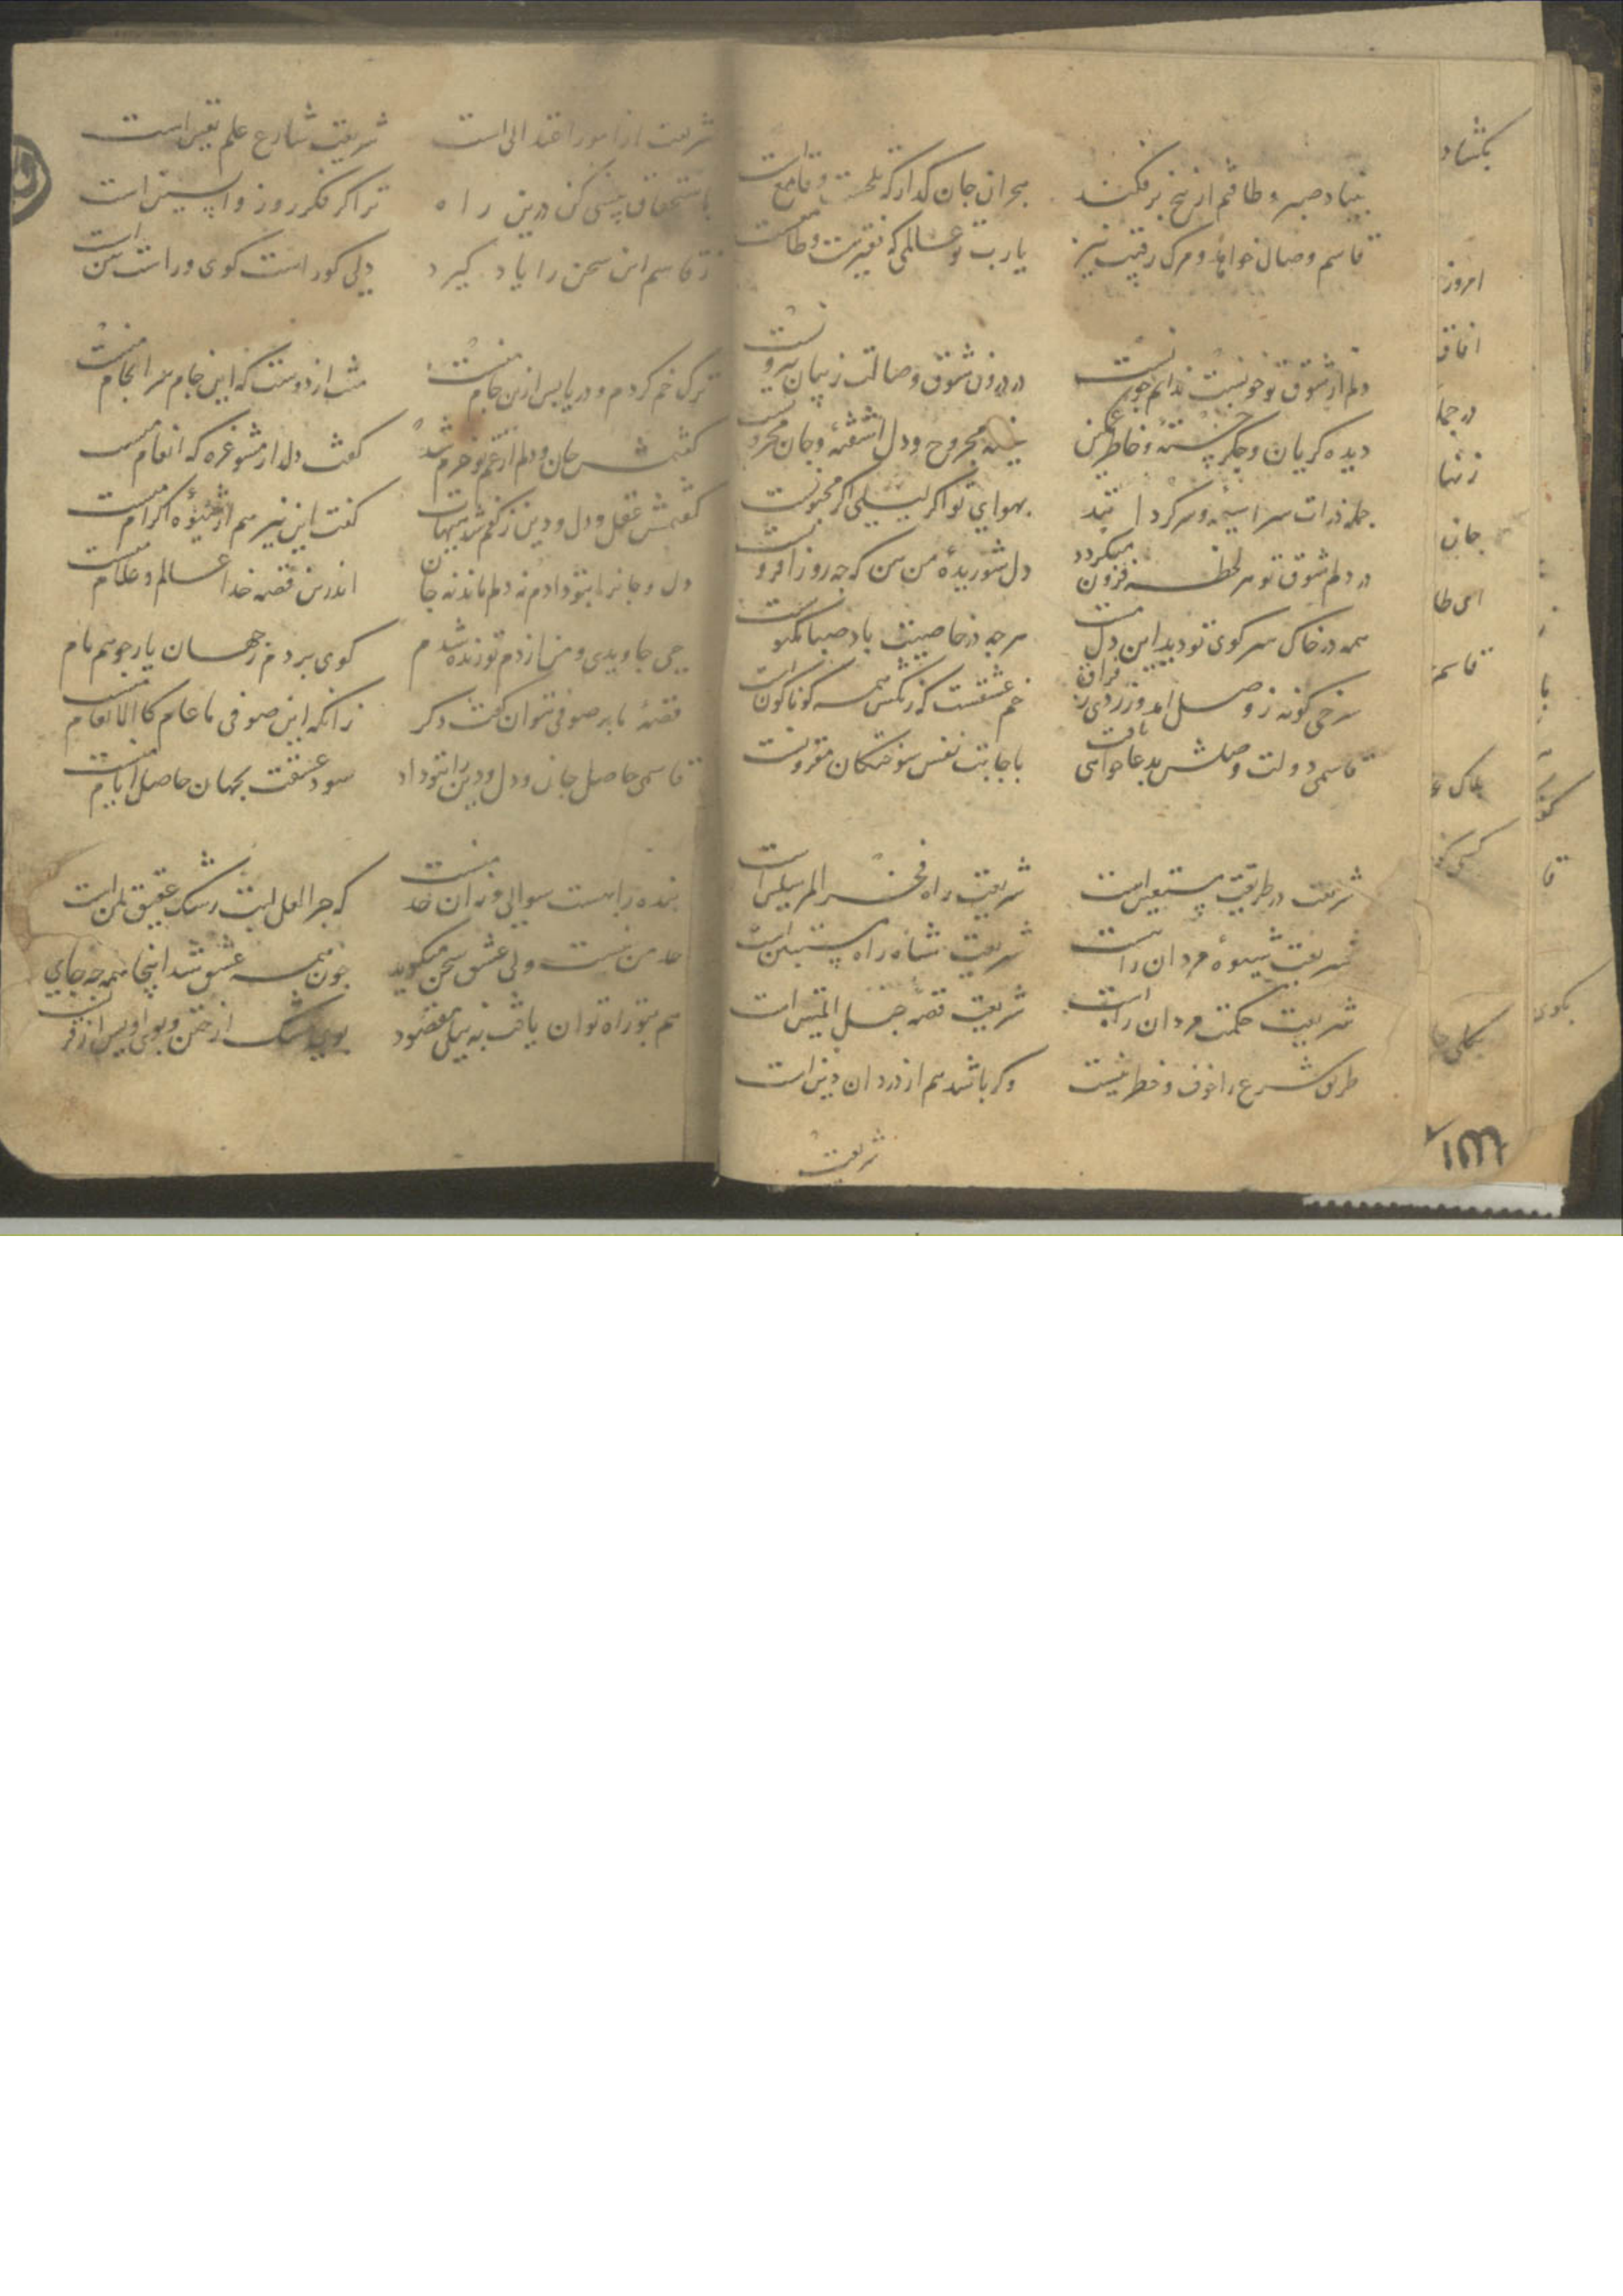 بنیاد صبر و طاقتم از بیخ برفکند
هجران جان گداز که تلخست و قامع است
قاسم وصال خواهد و مرگ رقیب نیز
یا رب تو عالمی که فقیرست و طامعست
دلم از شوق تو خونست ندانم چونست
در درون شوق وصالت ز بیان بیرونست
دیده گریان و جگر خسته و خاطر غمگین
سینه مجروح و دل آشفته و جان محزونست
جمله ذرات سراسیمه و سرگردانند
بهوای تو اگر لیلی اگر مجنونست
در دلم شوق تو هر لحظه فزون میگردد
دل شوریده من بین که چه روز افزونست
همه در خاک سر کوی تو دید این دل مست
هر چه در خاصیت باد صبا مکنونست
سرخی گونه ز وصل آمد و زردی ز فراق
خم عشقست که رنگش همه گوناگون است
قاسمی دولت وصلش بدعا خواهی یافت
باجابت نفس سوختگان مقرونست
شریعت در طریقت پیشتعین است
شریعت راه فخر المرسلین است
شریعت شیوه مردان راهست
شریعت شاه راه پیش بین است
شریعت حکمت مردان راهست
شریعت قصه حبل المتین است
طریق شرع را خوف و خطر نیست
وگر باشد هم از دزدان دین است
شریعت
شریعت از امور اعتدالی است
شریعت شارع علم یقین است
باستحقاق پیشی کن درین راه
ترا گر فکر روز واپسین است
ز قاسم این سخن را یاد گیرد
دلی کو راست گوی و راست بین است
ترک خم کردم و دریا پس ازین جام منست
منت از دوست که این جام سرانجام منست
گفتمش جان و دلم از غم تو خرم شد
گفت دلدار مشو غره که انعام منست
گفتمش عقل و دل و دین ز کفم شد هیهات
گفت این نیز هم از شیوه اکرام منست
دل و جانرا بتو دادم نه دلم ماند نه جان
اندرین قصه خدا عالم و علام منست
حی جاویدی و من از دم تو زنده شدم
گوی بردم ز جهان یار چو همنام
قصه ما بر صوفی نتوان گفت دگر
زانکه این صوفی ما عام کالانعام منست
قاسمی حاصل جان و دل و دین را بتو داد
سود عشقت بجهان حاصل ایام منست
بنده را هست سوالی و نه آن حد منست
که چرا لعل لبت رشک عقیق یمن است
حد من نیست ولی عشق سخن میگوید
چون همه عشق شد اینجا همه چه جای
هم بتو راه توان یافت به مقصود
بوی مشک از ختن و بوی اویس از قرنست
بگشاد
امروز
آفاق
در جما
زنها
جان
ای طا
قاسم